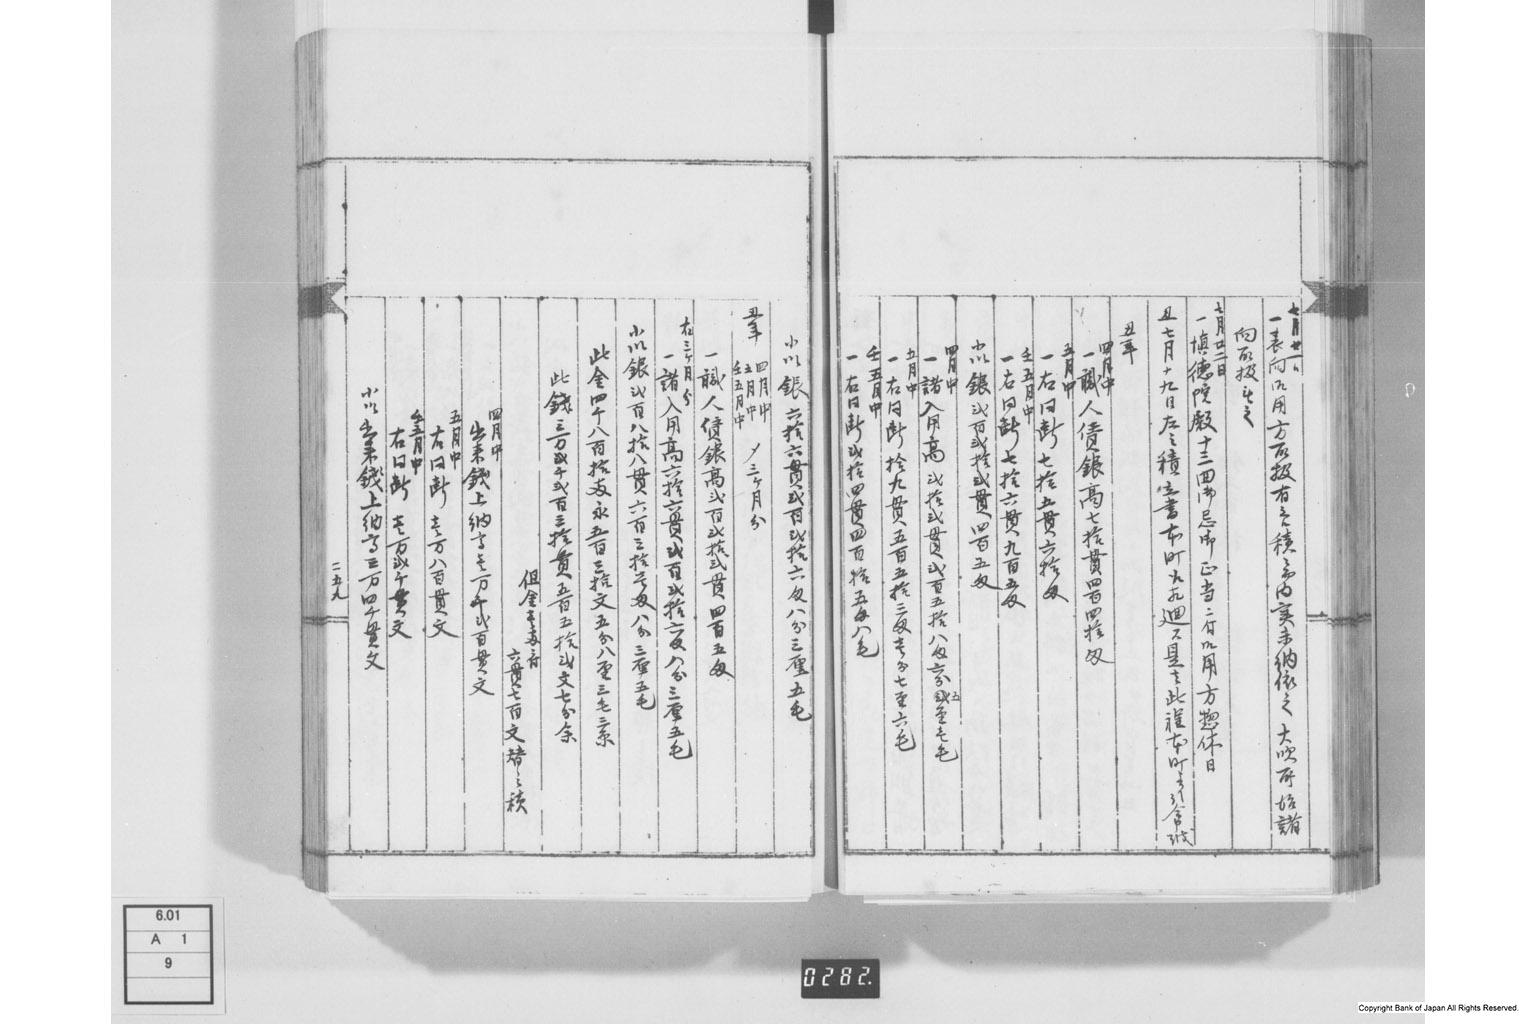 七月廿一日
一表向御用方取扱有之積之処内実未納依之大吹所始諸
向取扱無之
七月廿二日
一慎徳院殿十三回御忌御正当ニ付御用方惣休日
丑七月十九日左之積書本町
丑年
四月中
一職人儥銀高七拾貫四百四拾匁
五月中
一右同断七拾五貫六拾匁
壬五月中
一右同断七拾六貫九百五匁
小以銀弐百弐拾弐貫四百五匁
四月中
一諸入用高弐拾弐貫弐百五拾八匁六分五厘七毛
五月中
一右同断拾九貫五百五拾二匁壱分七厘六毛
壬五月中
一右同断弐拾四貫四百拾五匁八毛
小以銀六拾六貫弐百弐拾六匁八分三厘五毛
丑年
四月中
五月中
壬五月中
〆三ヶ月分
一職人儥銀高弐百弐拾弐貫四百五匁
右三ヶ月分
一諸入用高六拾六貫弐百弐拾六匁八分三厘五毛
小以銀弐百八拾八貫六百三拾壱匁八分三厘五毛
此金四千八百拾両永五百三拾文五分八厘三毛三糸
此銭三万弐千弐百三拾貫五百五拾弐文七分余
但金壱両ニ付
六貫七百文替之積
四月中
出来銭上納高壱万弐百貫文
五月中
右同断壱万八百貫文
壬五月中
右同断壱万弐千貫文
小以出来銭上納高三万四千貫文
二五九
6.01
A 1
9
0282.
Copyright Bank of Japan All Rights Reserved.